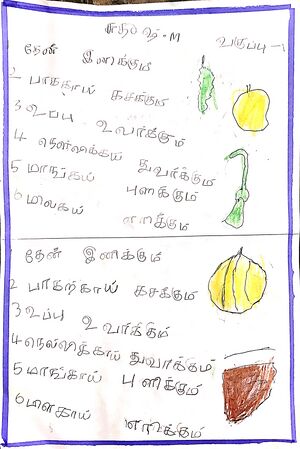 வகுப்பு - 1
தேன் இனிக்கும்
2 பாகற்காய் கசக்கும்
3 உப்பு உவர்க்கும்
4 துவர்க்கும்
5 மாங்காய் புளிக்கும்
6
தேன் இனிக்கும்
2 பாகற்காய் கசக்கும்
3 உப்பு உவர்க்கும்
4 நெல்லிக்காய் துவர்க்கும்
5 மாங்காய் புளிக்கும்
6 மிளகாய்
எரிக்கும்